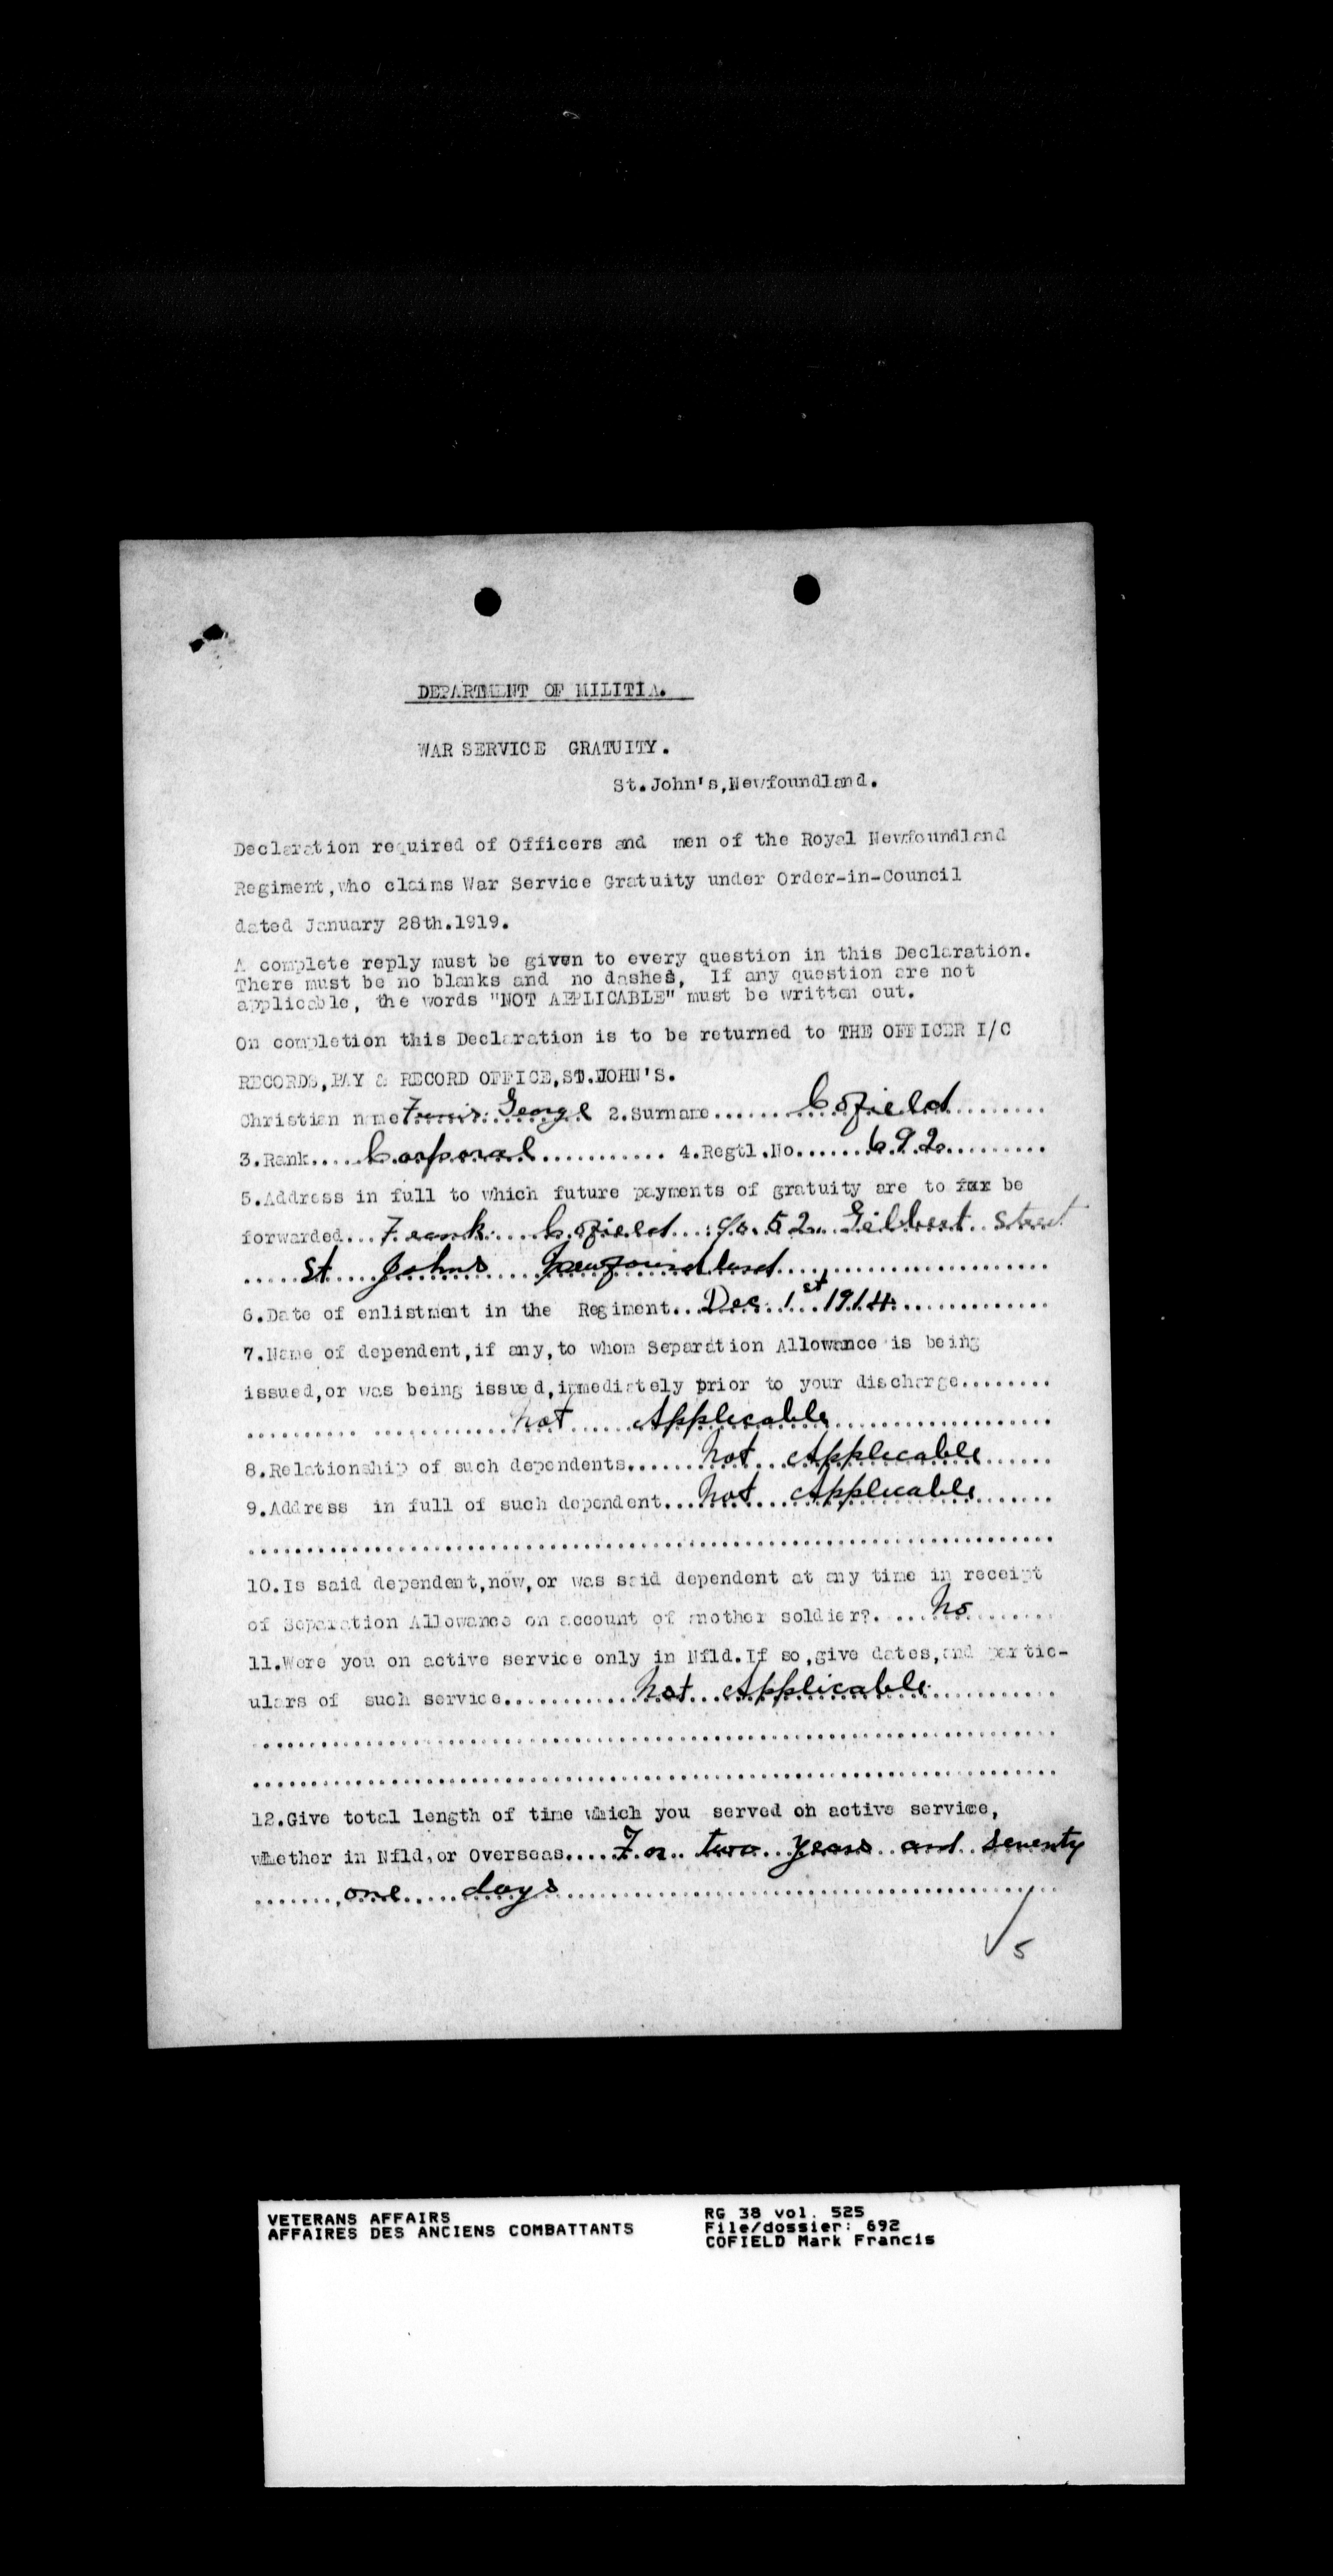 DEPARTMENT OF MILITIA.
WAR SERVICE GRATUITY.
St.John's,Newfoundland.
Declaration required of Officers and men of the Royal Newfoundland
Regiment,who claims War Service Gratuity under Order-in-Council
dated January 28th.1919.
A complete reply must be given to every question in this Declaration.
There must be no blanks and no dashes, If any question are not
applicable, the words "NOT APPLICABLE" must be written out.
On completion this Declaration is to be returned to THE OFFICER I/C
RECORDS,PAY & RECORD OFFICE,ST.JOHN'S.
Christian name George 2.Surname...... Cofield
3.Rank..... Corporal ........... 4.Regtl.No...... 692.........
5.Address in full to which future payments of gratuity are to be
forwarded... Frank Cofield 52 Gilbert Street
..... St Johns Newfoundland .....
6.Date of enlistment in the Regiment.. Dec 1st 1914.............
7.Name of dependent,if any,to whom Separation Allowance is being
issued,or was being issued,immediately prior to your discharge........
.......... Not Applicable ..........
8.Relationship of such dependents...... Not Applicable ......
9.Address in full of such dependent... Not Applicable ......
10.Is said dependent,now,or was said dependent at any time in receipt
of Separation Allowance on account of another soldier?. ... No ........
11.Were you on active service only in Nfld.If so,give dates,and partic-
ulars of such service........... Not Applicable ...........
12.Give total length of time which you served on active service,
whether in Nfld,or Overseas.... For two years and seventy
....... one days .......
5
VETERANS AFFAIRS
AFFAIRES DES ANCIENS COMBATTANTS
RG 38 vol. 525
File/dossier: 692
COFIELD Mark Francis